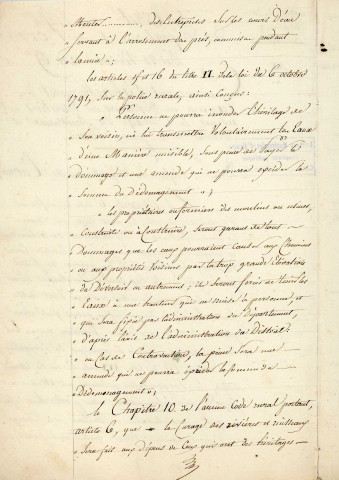 « Mentes............, des Entreprises sur les cours d'eau
« servant à l'arrosement des prés, commises pendant
« l'année »;
les articles 15 et 16 du titre II de la loi du 6 octobre
1791, sur la police rurale, ainsi conçus:
« Personne ne pourra inonder l'héritage de
« son voisin, ni lui transmettre volontairement les Eaux
« d'une Manière nuisible, sous peine de payer le
« dommage et une amende qui ne pourra excéder la
« Somme du Dédomagement »;
« les propriétaires ou fermiers des moulins ou usines,
« construits ou à Construire, seront garans de tout
« Dommages que les eaux pourraient causer aux Chemins
« ou aux propriétés Voisines par la trop grande Elévation
« du Déversoir ou autrement; ils seront forcés de tenir les
« Eaux à une hauteur qui ne nuise à personne, et
« qui sera fixée par l'administration du Département,
« d'après l'avis de l'administration du District.
« En Cas de Contravention, la peine sera une
« amende qui ne pourra excéder la somme du
« Dédomagement »;
le Chapitre 10 de l'ancien Code rural portant,
article 6, que « le Curage des rivières et ruisseaux
« Sera fait aux dépens de Ceux qui ont des héritages